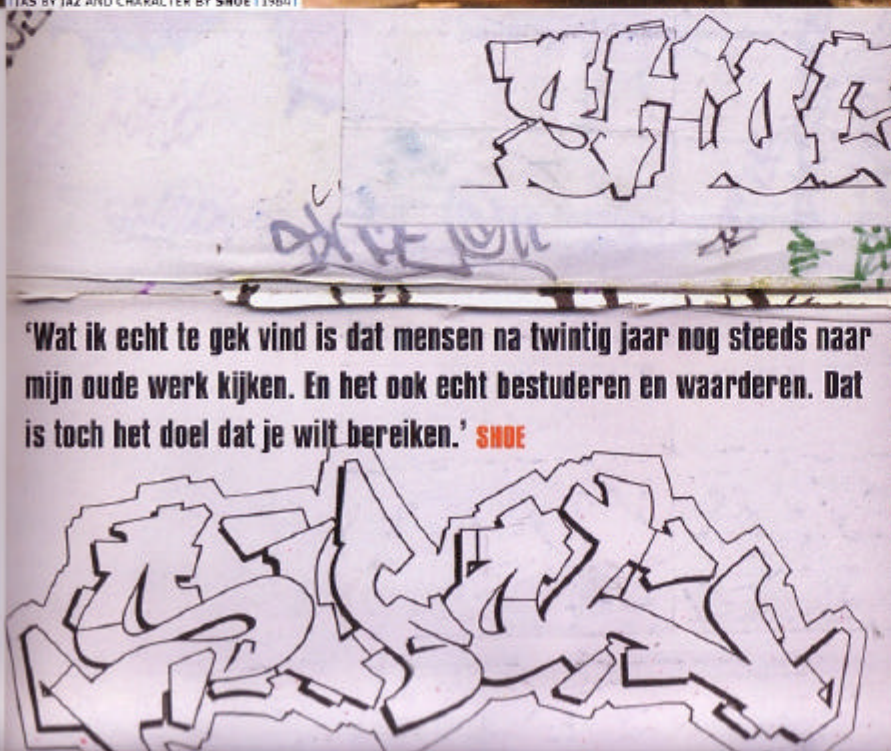 JAZ AND CHARACTER BY SHOE (1984)
SHOE
'Wat ik echt te gek vind is dat mensen na twintig jaar nog steeds naar
mijn oude werk kijken. En het ook echt bestuderen en waarderen. Dat
is toch het doel dat je wilt bereiken.' SHOE